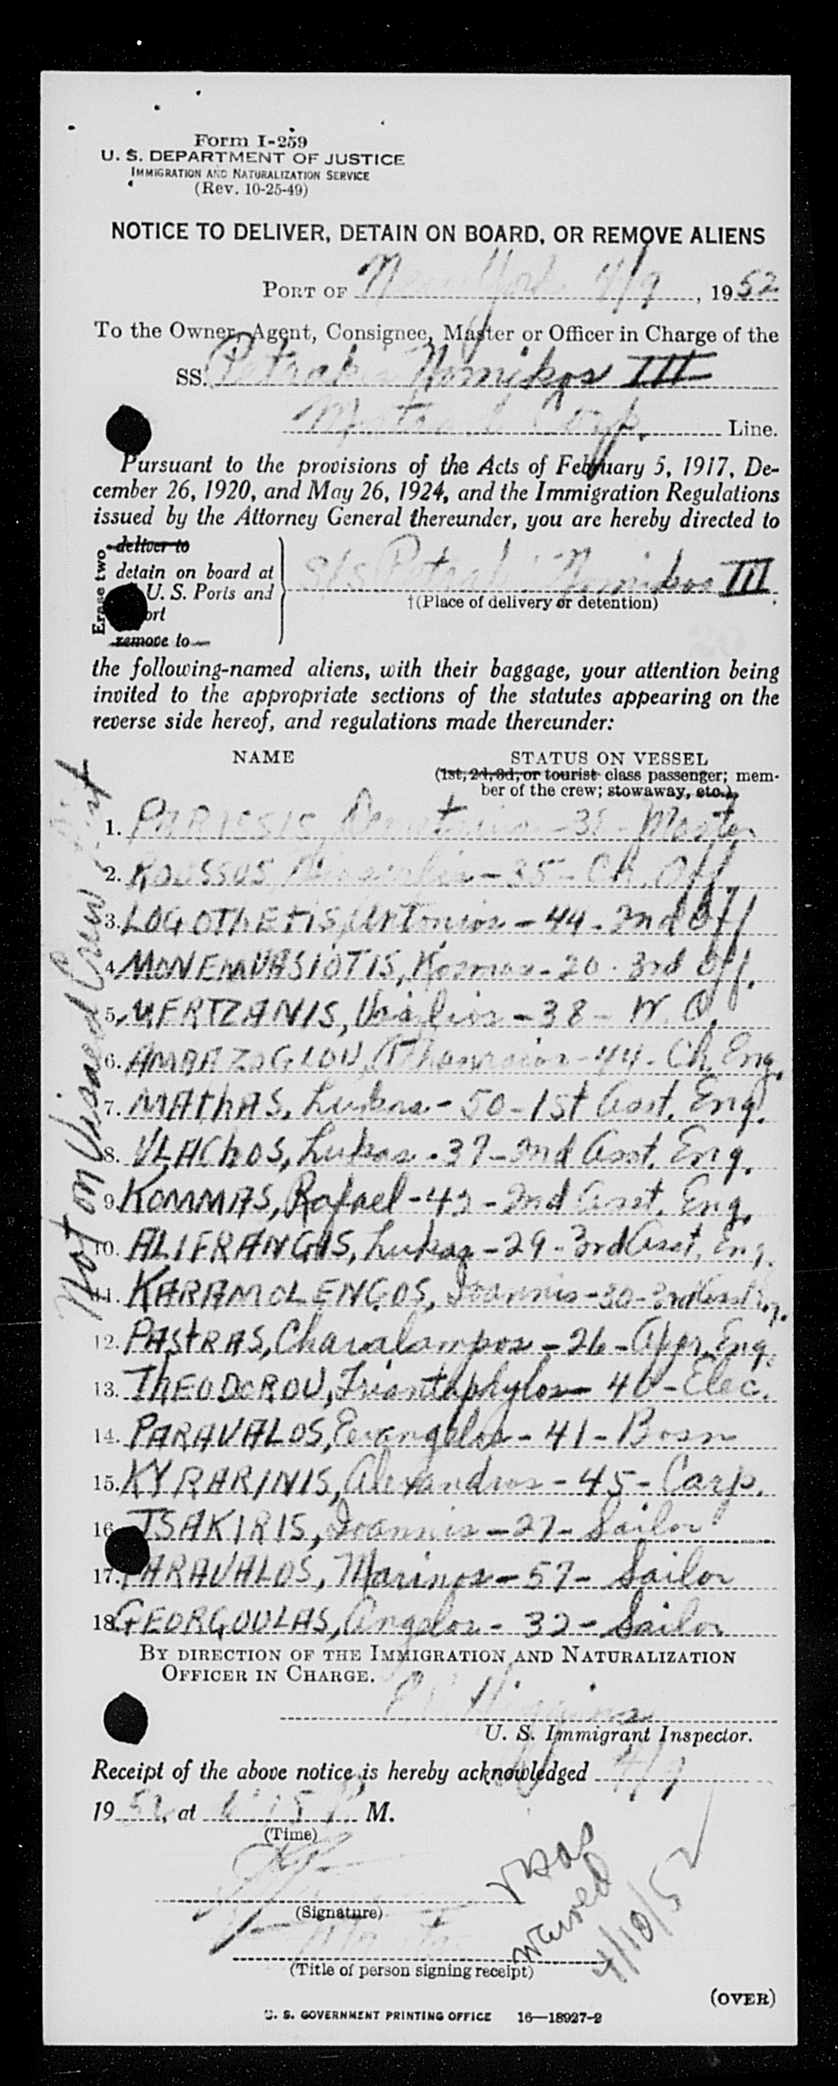 Form I-259
U. S. DEPARTMENT OF JUSTICE
IMMIGRATION AND NATURALIZATION SERVICE
(Rev. 10-25-49)
NOTICE TO DELIVER, DETAIN ON BOARD, OR REMOVE ALIENS
PORT OF New York 4/9, 1952
To the Owner, Agent, Consignee, Master or Officer in Charge of the
SS. Petrakis Nomikos III
Corp. Line.
Pursuant to the provisions of the Acts of February 5, 1917, De-
cember 26, 1920, and May 26, 1924, and the Immigration Regulations
issued by the Attorney General thereunder, you are hereby directed to
Erase two
deliver to
detain on board at
U. S. Ports and
remove to
S/S Petrakis Nomikos III
†(Place of delivery or detention)
the following-named aliens, with their baggage, your attention being
invited to the appropriate sections of the statutes appearing on the
reverse side hereof, and regulations made thereunder:
NAME STATUS ON VESSEL
(1st, 2d, 3d, or tourist class passenger; mem-
ber of the crew; stowaway, etc.)
Not on Visaed Crew List
1. Master
2. ROUSSOS - 35 - Ch. Off
3. LOGOTHETIS, Antonios - 44 - 2nd Off
4. MONEMVASIOTIS, Kosmas - 20 - 3rd Off.
5. MERTZANIS, Vasilios - 38 - W. O.
6. AMBAZOGLOU, Athanasios - 44 - Ch. Eng.
7. MATHAS, Lukas - 50 - 1st Asst. Eng.
8. VLACHOS, Lukas - 37 - 2nd Asst. Eng.
9. KOMMAS, Rafael - 42 - 2nd Asst. Eng.
10. ALIFRANGIS, Lukas - 29 - 3rd Asst. Eng.
11. KARAMOLENGOS, Ioannis - 30 - 3rd Asst Eng.
12. PASTRAS, Charalampos - 26 - Appr. Eng.
13. THEODOROU, Triantaphylos - 40 - Elec.
14. PARAVALOS, Evangelos - 41 - Bosn
15. KYRARINIS, Alexandros - 45 - Carp.
16. TSAKIRIS, Ioannis - 27 - Sailor
17. PARAVALOS, Marinos - 57 - Sailor
18. GEORGOULAS, Angelos - 32 - Sailor
BY DIRECTION OF THE IMMIGRATION AND NATURALIZATION
OFFICER IN CHARGE.
Higgins
U. S. Immigrant Inspector.
Receipt of the above notice is hereby acknowledged 4/9
1952, at 6:15 P. M.
(Time)
(Signature)
Master
(Title of person signing receipt)
visas
waived
4/10/52
(OVER)
U. S. GOVERNMENT PRINTING OFFICE 16—18927-2